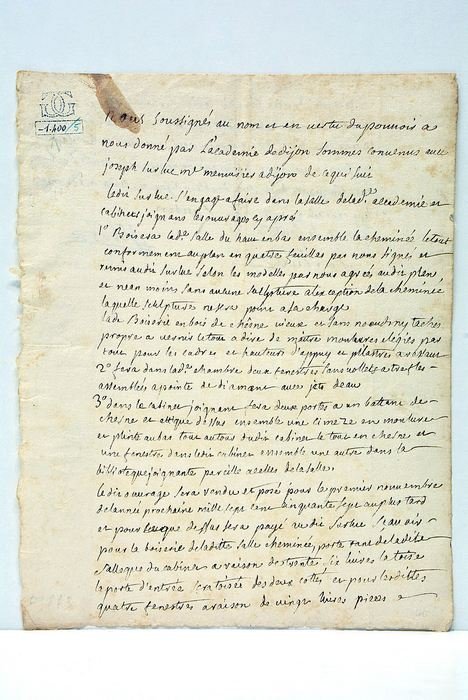 1.400/5
Nous soussignés au nom et en vertu du pouvoir a
nous donné par L'academie de dijon sommes convenus avec
joseph surlue me menuisiers a dijon de ce qui suit
ledit surlue s'engage a faire dans la salle de lad. accademie et
cabinet joignans les ouvrages cy apres
1° Boisera lad. salle du haut en bas ensemble la cheminée le tout
conformement au plan en quatre feuilles par nous signés et
remis audit surlue selon les modelles par nous agreés audit plan
et neanmoins sans aucune sculpture a l'exception de la cheminée
laquelle sculpture ne sera point a sa charge
lade Boisrie en bois de chêne vieux et sans noeuds ny taches
propre a vernir le tout a dire de maitre moulures elegies par
tout pour les cadres et hauteurs d'appuy et pilastres
2° fera dans lad. chambre deux fenestres sans vollets a
assemblées a pointe de diamant avec jets deau
3° dans le cabinet joignant fera deux portes a un battant de
chesne et attique dessus ensemble une cimeze en moulure
et plinte au bas tout autour dudit cabinet le tout en chesne et
une fenestre dans ledit cabinet ensemble une autre dans la
biblioteque joignante pareille a celles de la salle
ledit ouvrage sera rendu et posé pour le premier novembre
de l'année prochaine mille sept cent cinquante sept au plus tard
et pour ce que dessus sera payé audit surlue scavoir
pour la boiserie de laditte salle cheminée, porte tant de ladite
salle que du cabinet a raison de trente six livres la toise
la porte d'entrée sera toisée des deux cottés et pour lesdittes
quatre fenestres a raison de vingt livres piece